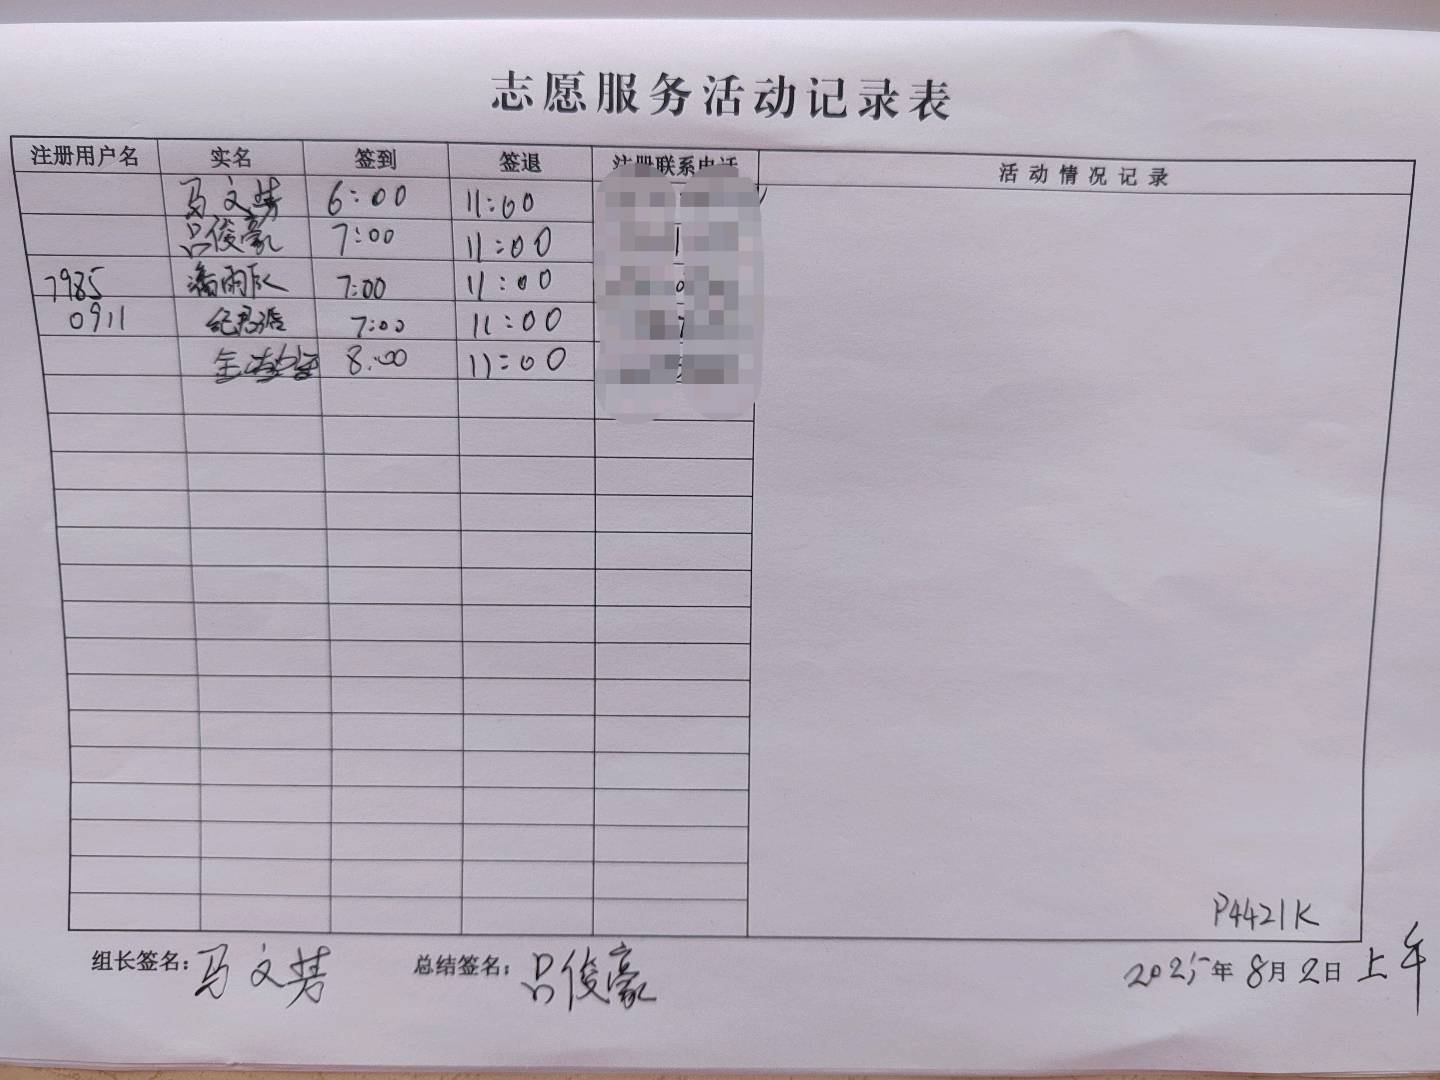 志愿服务活动记录表
注册用户名 实名 签到 签退 注册联系电话 活动情况记录
马文芳 6:00 11:00
吕俊豪 7:00 11:00
7985 潘雨 7:00 11:00
0911 纪 7:00 11:00
8:00 11:00
P4421K
组长签名: 马文芳 总结签名: 吕俊豪 2025年8月2日 上午